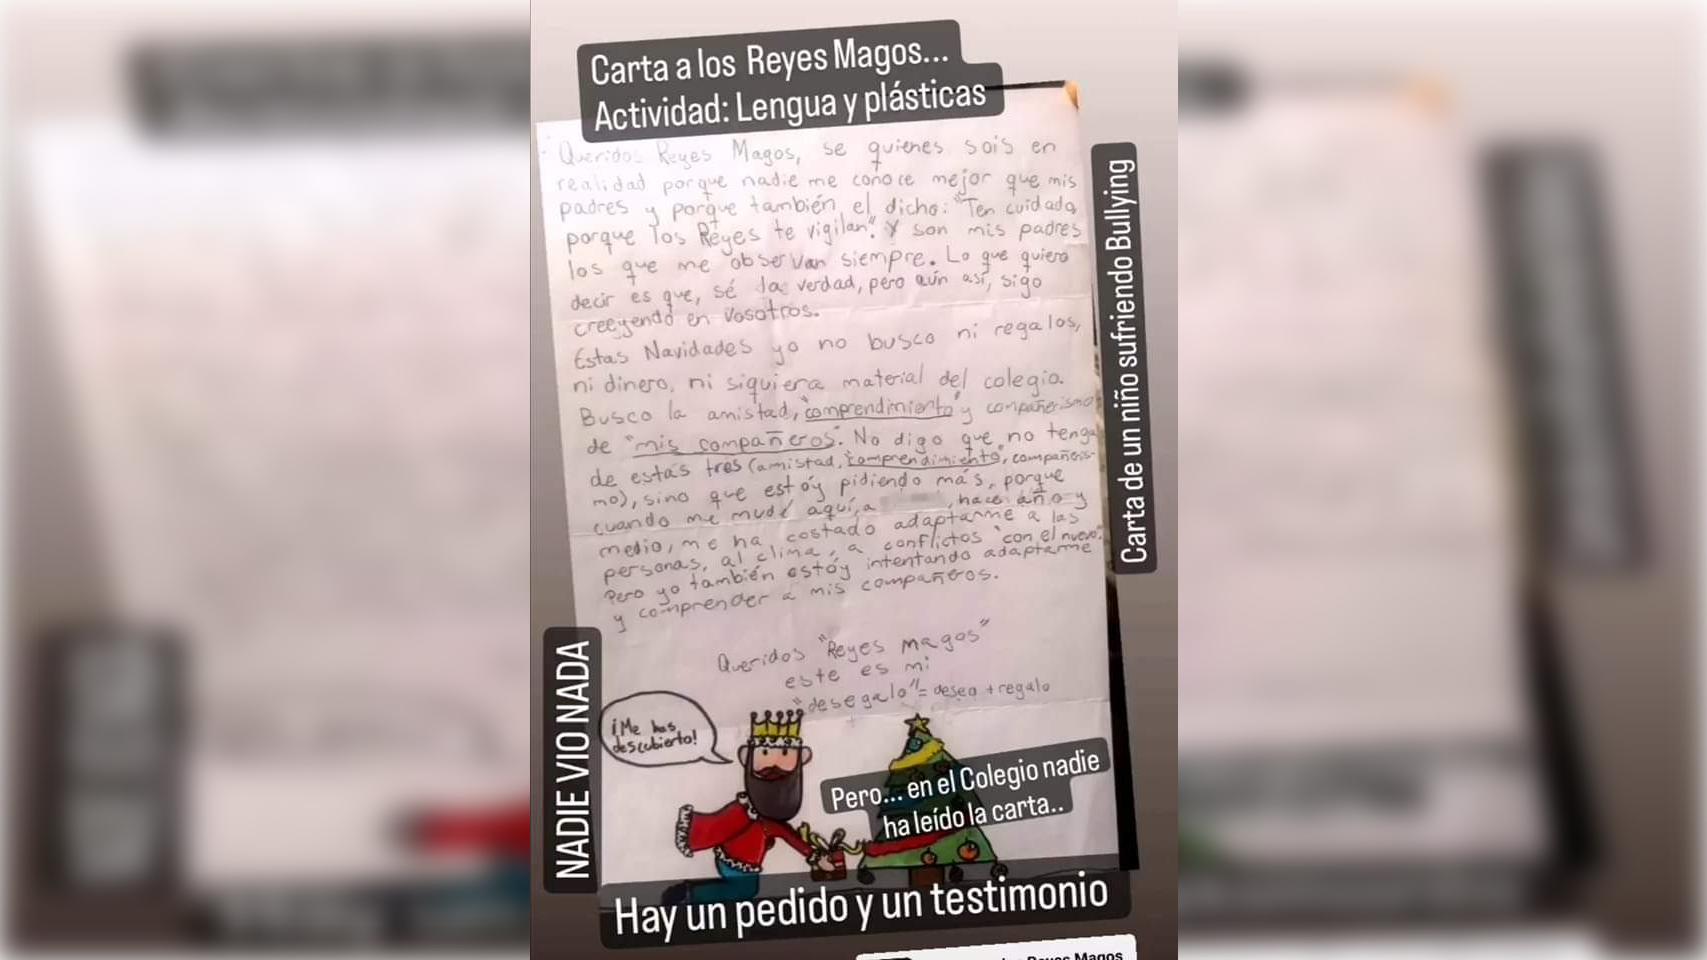 Carta a los Reyes Magos...
Actividad: Lengua y plásticas
Queridos Reyes Magos, se quienes sois en
realidad porque nadie me conoce mejor que mis
padres y porque también el dicho: "Ten cuidado,
porque los Reyes te vigilan". Y son mis padres
los que me observan siempre. Lo que quiero
decir es que, sé la verdad, pero aún así, sigo
creeyendo en vosotros.
Estas Navidades yo no busco ni regalos,
ni dinero, ni siquiera material del colegio.
Busco la amistad, "comprendimiento" y compañerismo
de "mis compañeros". No digo que no tenga
de estas tres (amistad, "comprendimiento", compañeris-
mo), sino que estóy pidiendo más, porque
cuando me mudé aquí, a , hace año y
medio, me ha costado adaptarme a las
personas, al clima, a conflictos "con el nuevo".
Pero yo también estóy intentando adaptarme
y comprender a mis compañeros.
Queridos "Reyes magos"
este es mi
"desegalo" = deseo + regalo
¡Me has
descubierto!
Carta de un niño sufriendo Bullying
NADIE VIO NADA
Pero... en el Colegio nadie
ha leído la carta..
Hay un pedido y un testimonio
Reyes Magos